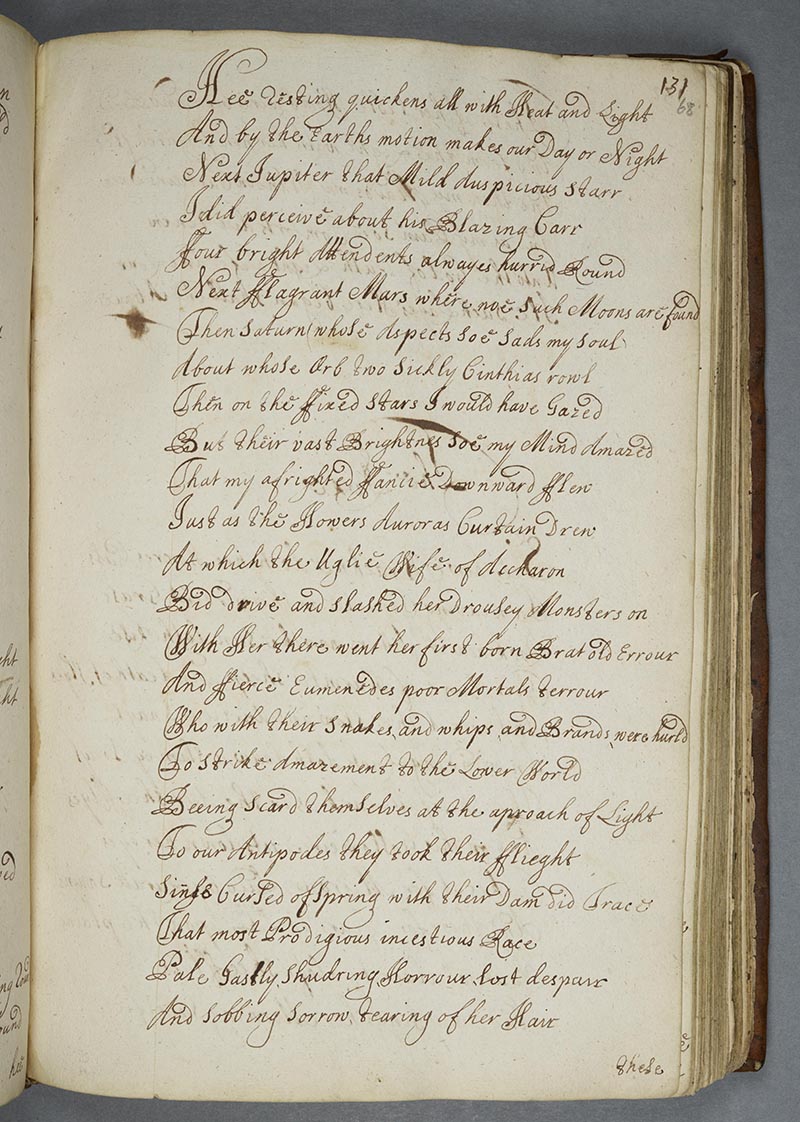 131
68
Hee resting quickens all with Heat and Light
And by the Earths motion makes our Day or Night
Next Jupiter that Mild Auspicious Starr
I did perceive about his Blazing Carr
ffour bright Attendents alwayes hurrid Round
Next fflagrant Mars where noe such Moons are found
Then Saturn (whose Aspects soe sads my soul)
About whose Orb two Sickly Cinthias rowl
Then on the ffixed Stars I would have Gazed
But their vast Brightnes soe my Mind Amazed
That my afrighted ffancie Downward fflew
Just as the Howers Auroras Curtain Drew
At which the Uglie Wife of Accharon
Bid drive and slashed her Drousey Monsters on
With Her there went her first born Brat old Errour
And ffierce Eumenedes poor Mortals terrour
Who with their Snakes, and whips, and Brands were hurld
To Strike Amazement to the Lower World
Beeing scard themselves at the aproach of Light
To our Antipodes they took their fflieght
Sin̄s Cursed ofspring with their Dam did Trace
That most Prodigious incestious Race
Pale Gastly Shudring Horrour lost despair
And sobbing Sorrow tearing of her Hair
these